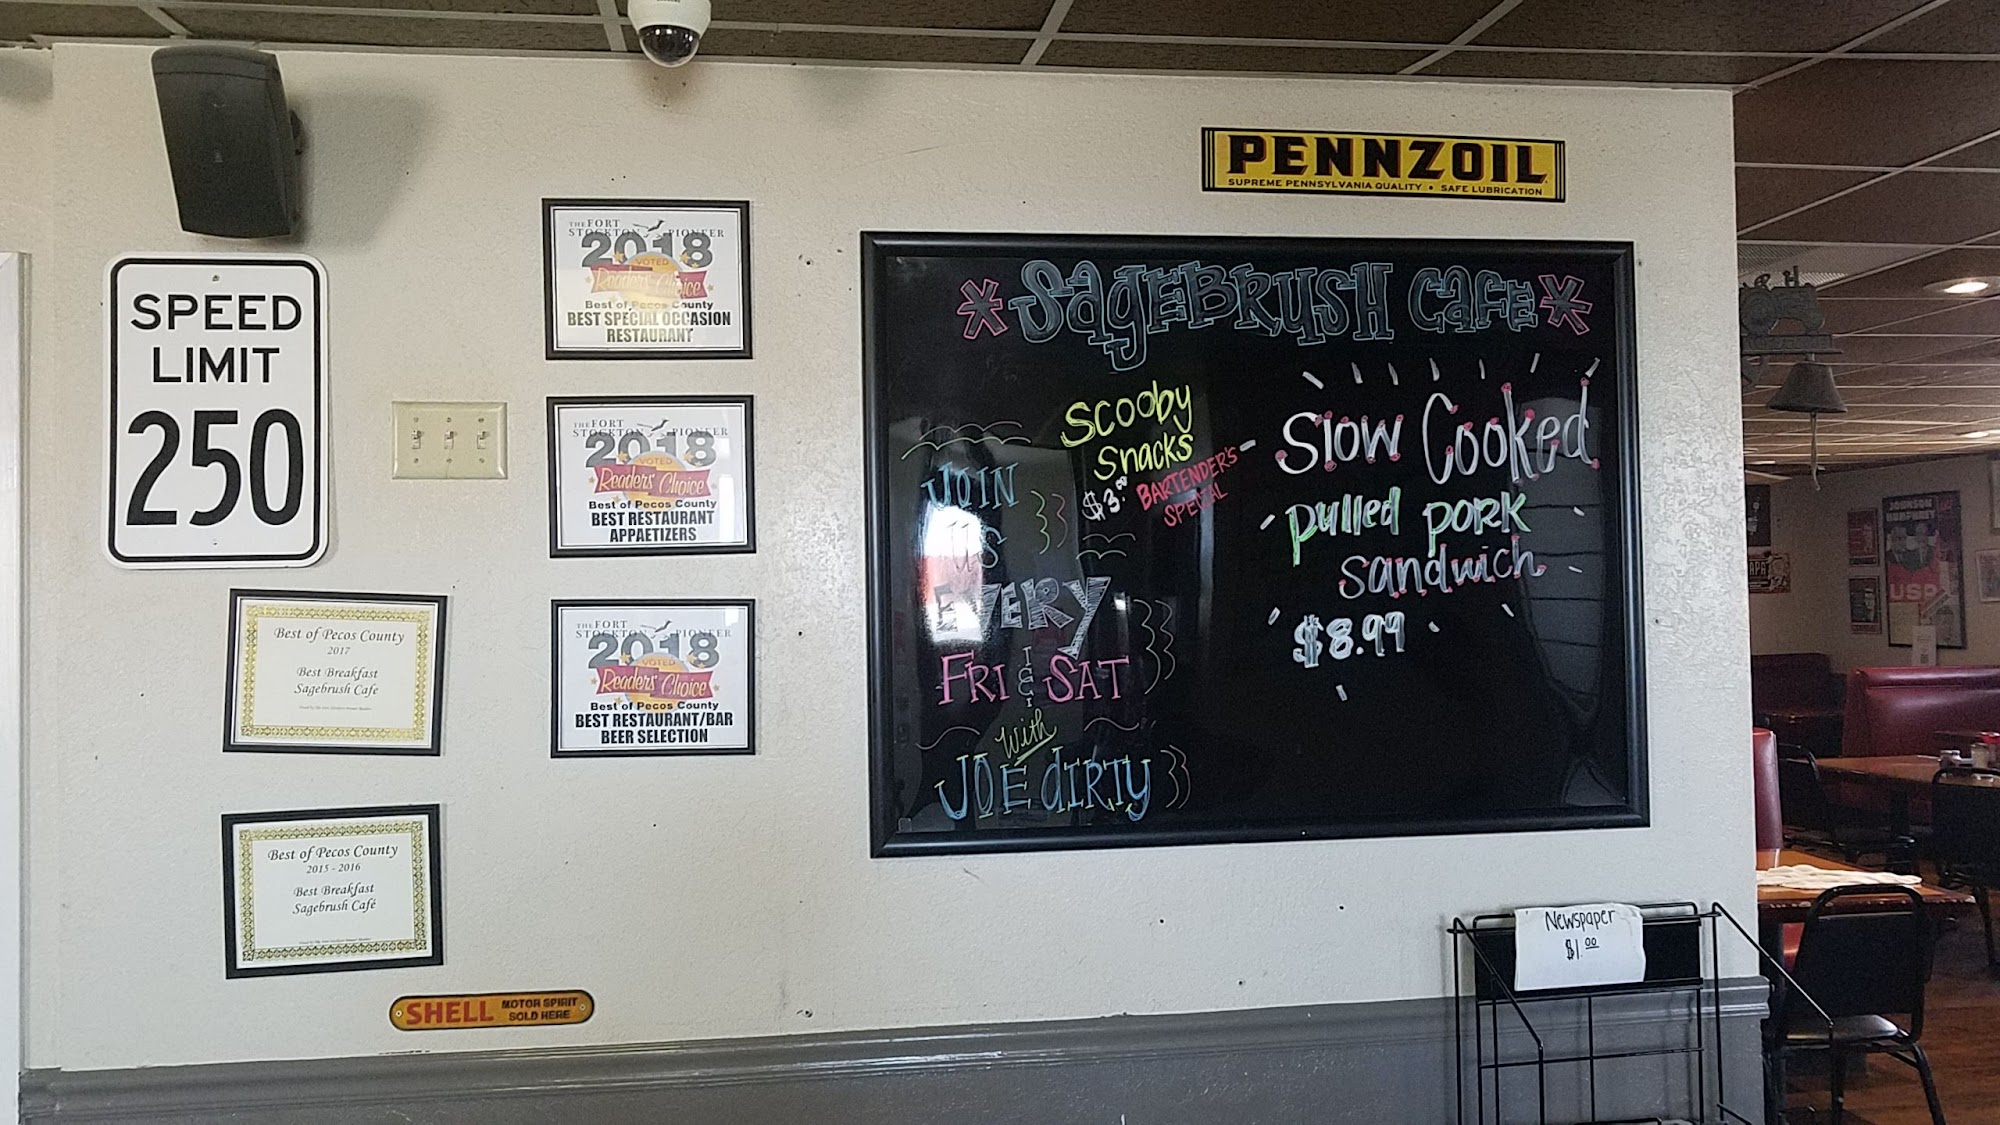 SPEED
LIMIT
250
THE FORT
STOCKTON PIONEER
2018
VOTED
Readers' Choice
Best of Pecos County
BEST SPECIAL OCCASION
RESTAURANT
THE FORT
STOCKTON PIONEER
2018
VOTED
Readers' Choice
Best of Pecos County
BEST RESTAURANT
APPAETIZERS
THE FORT
STOCKTON PIONEER
2018
VOTED
Readers' Choice
Best of Pecos County
BEST RESTAURANT/BAR
BEER SELECTION
Best of Pecos County
2017
Best Breakfast
Sagebrush Cafe
Best of Pecos County
2015 - 2016
Best Breakfast
Sagebrush Café
SHELL MOTOR SPIRIT
SOLD HERE
PENNZOIL
SUPREME PENNSYLVANIA QUALITY • SAFE LUBRICATION
*SAgEBRUSH CaFe*
Scooby
Snacks
$3.00
BARTENDER'S
SPECIAL
JOIN
US
EVERY
FRI & SAT
with
JOE dIRTY
Slow Cooked
pulled pork
sandwich
$8.99
Newspaper
$1.00
JOHNSON
HUMPHREY
USA